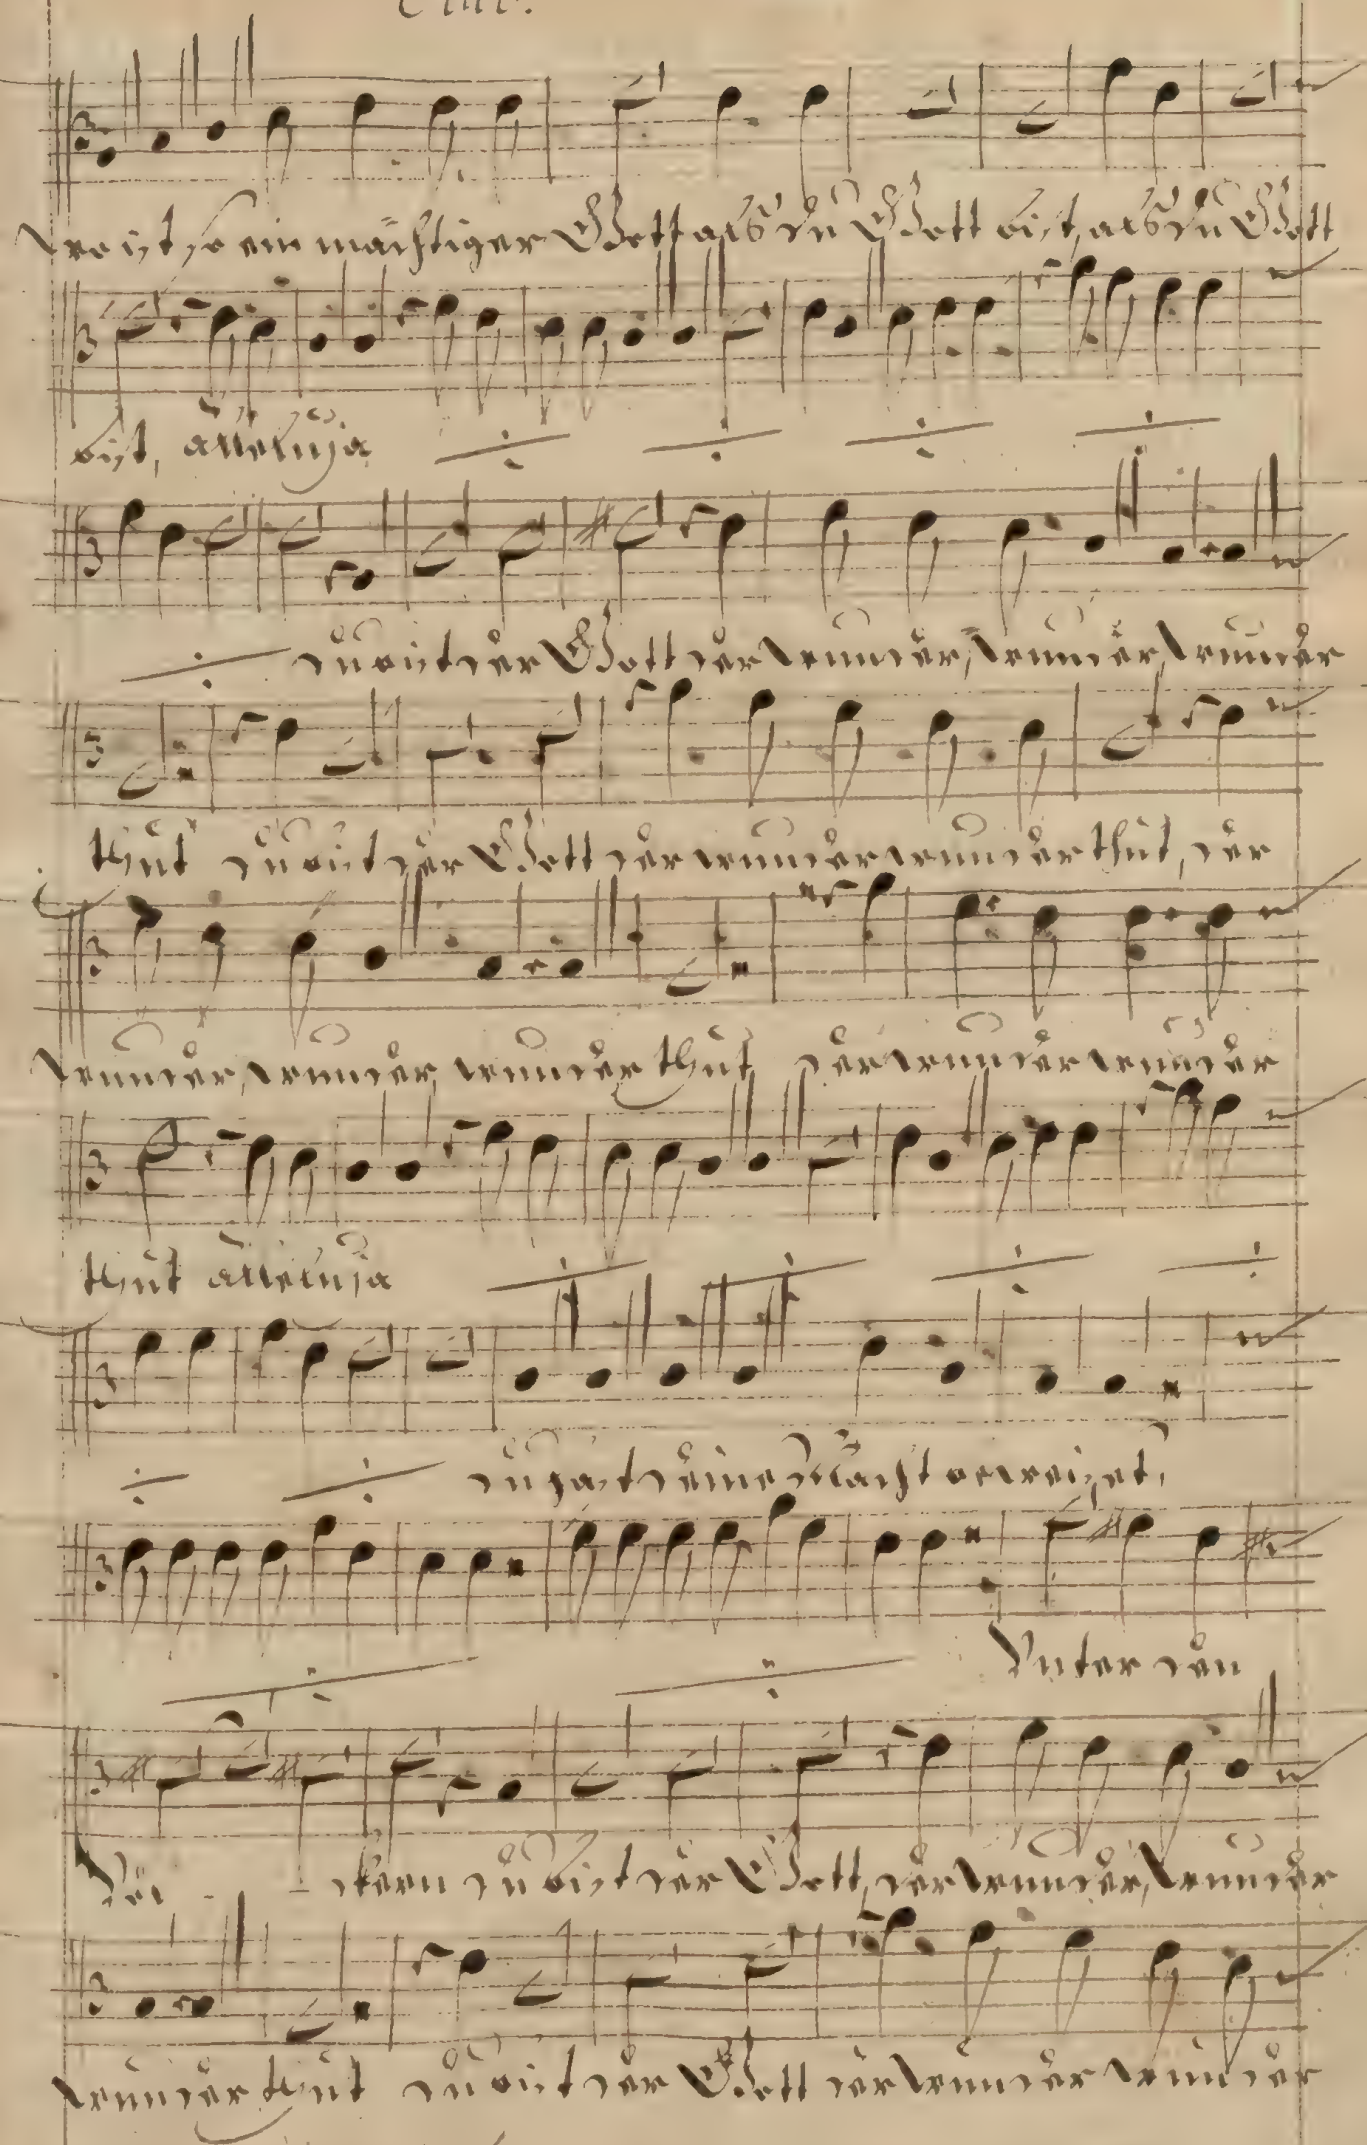 wo ist so ein mächtiger Gott als du Gott bist, als du Gott
bist, alleluja
du bist der Gott der wunder, wunder, wunder
thut du bist der Gott der wunder wunder thut, der
wunder, wunder, wunder thut der wunder wunder
thut alleluja
du hast deine Macht beweiset,
Unter den
Völ - - ckern du bist der Gott, der wunder, wunder
wunder thut du bist der Gott der wunder wunder